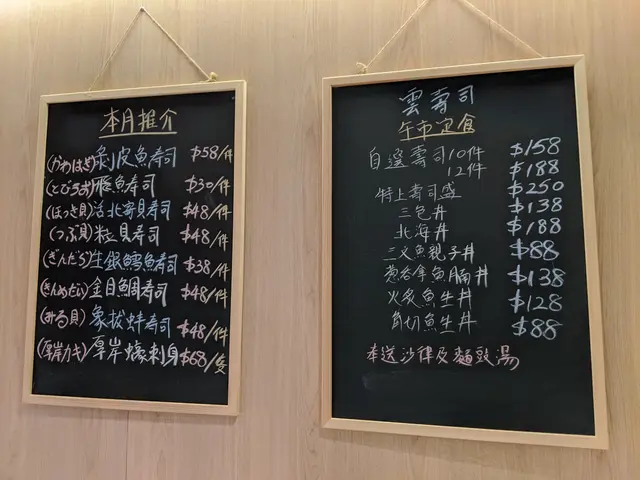 本月推介
(かわはぎ)剝皮魚寿司 $58/件
(とびうお)飛魚寿司 $30/件
(ほっき貝)活北寄貝寿司 $48/件
(つぶ貝)粒貝寿司 $48/件
(ぎんだら)生銀鱈魚寿司 $38/件
(きんめだい)金目鯛寿司 $48/件
(みる貝)象拔蚌寿司 $48/件
(厚岸カキ)厚岸蠔刺身 $68/隻
雲壽司
午市定食
自選壽司10件 $158
12件 $188
特上壽司盛 $250
三色丼 $138
北海丼 $188
三文魚親子丼 $88
葱吞拿魚腩丼 $138
火炙魚生丼 $128
角切魚生丼 $88
送沙律及麵豉湯